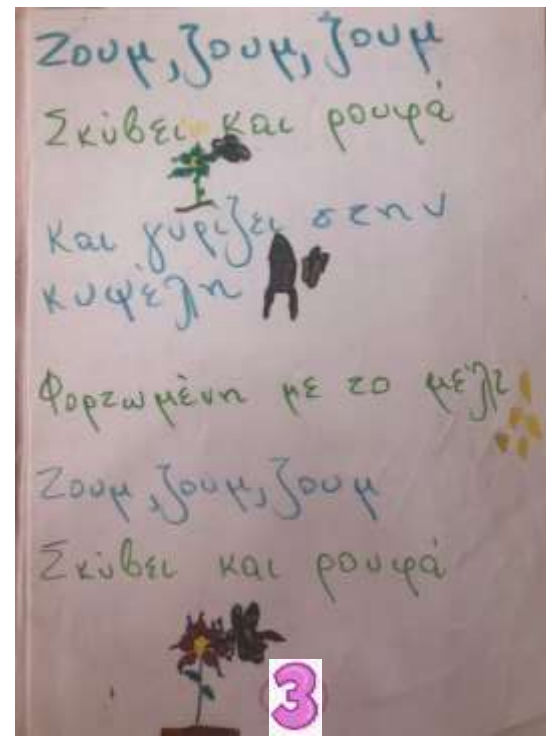 Ζουμ, ζουμ, ζουμ
Σκύβει και ρουφά
και γυρίζει στην
κυψέλη
Φορτωμένη με το μέλι
Ζουμ, ζουμ, ζουμ
Σκύβει και ρουφά
3